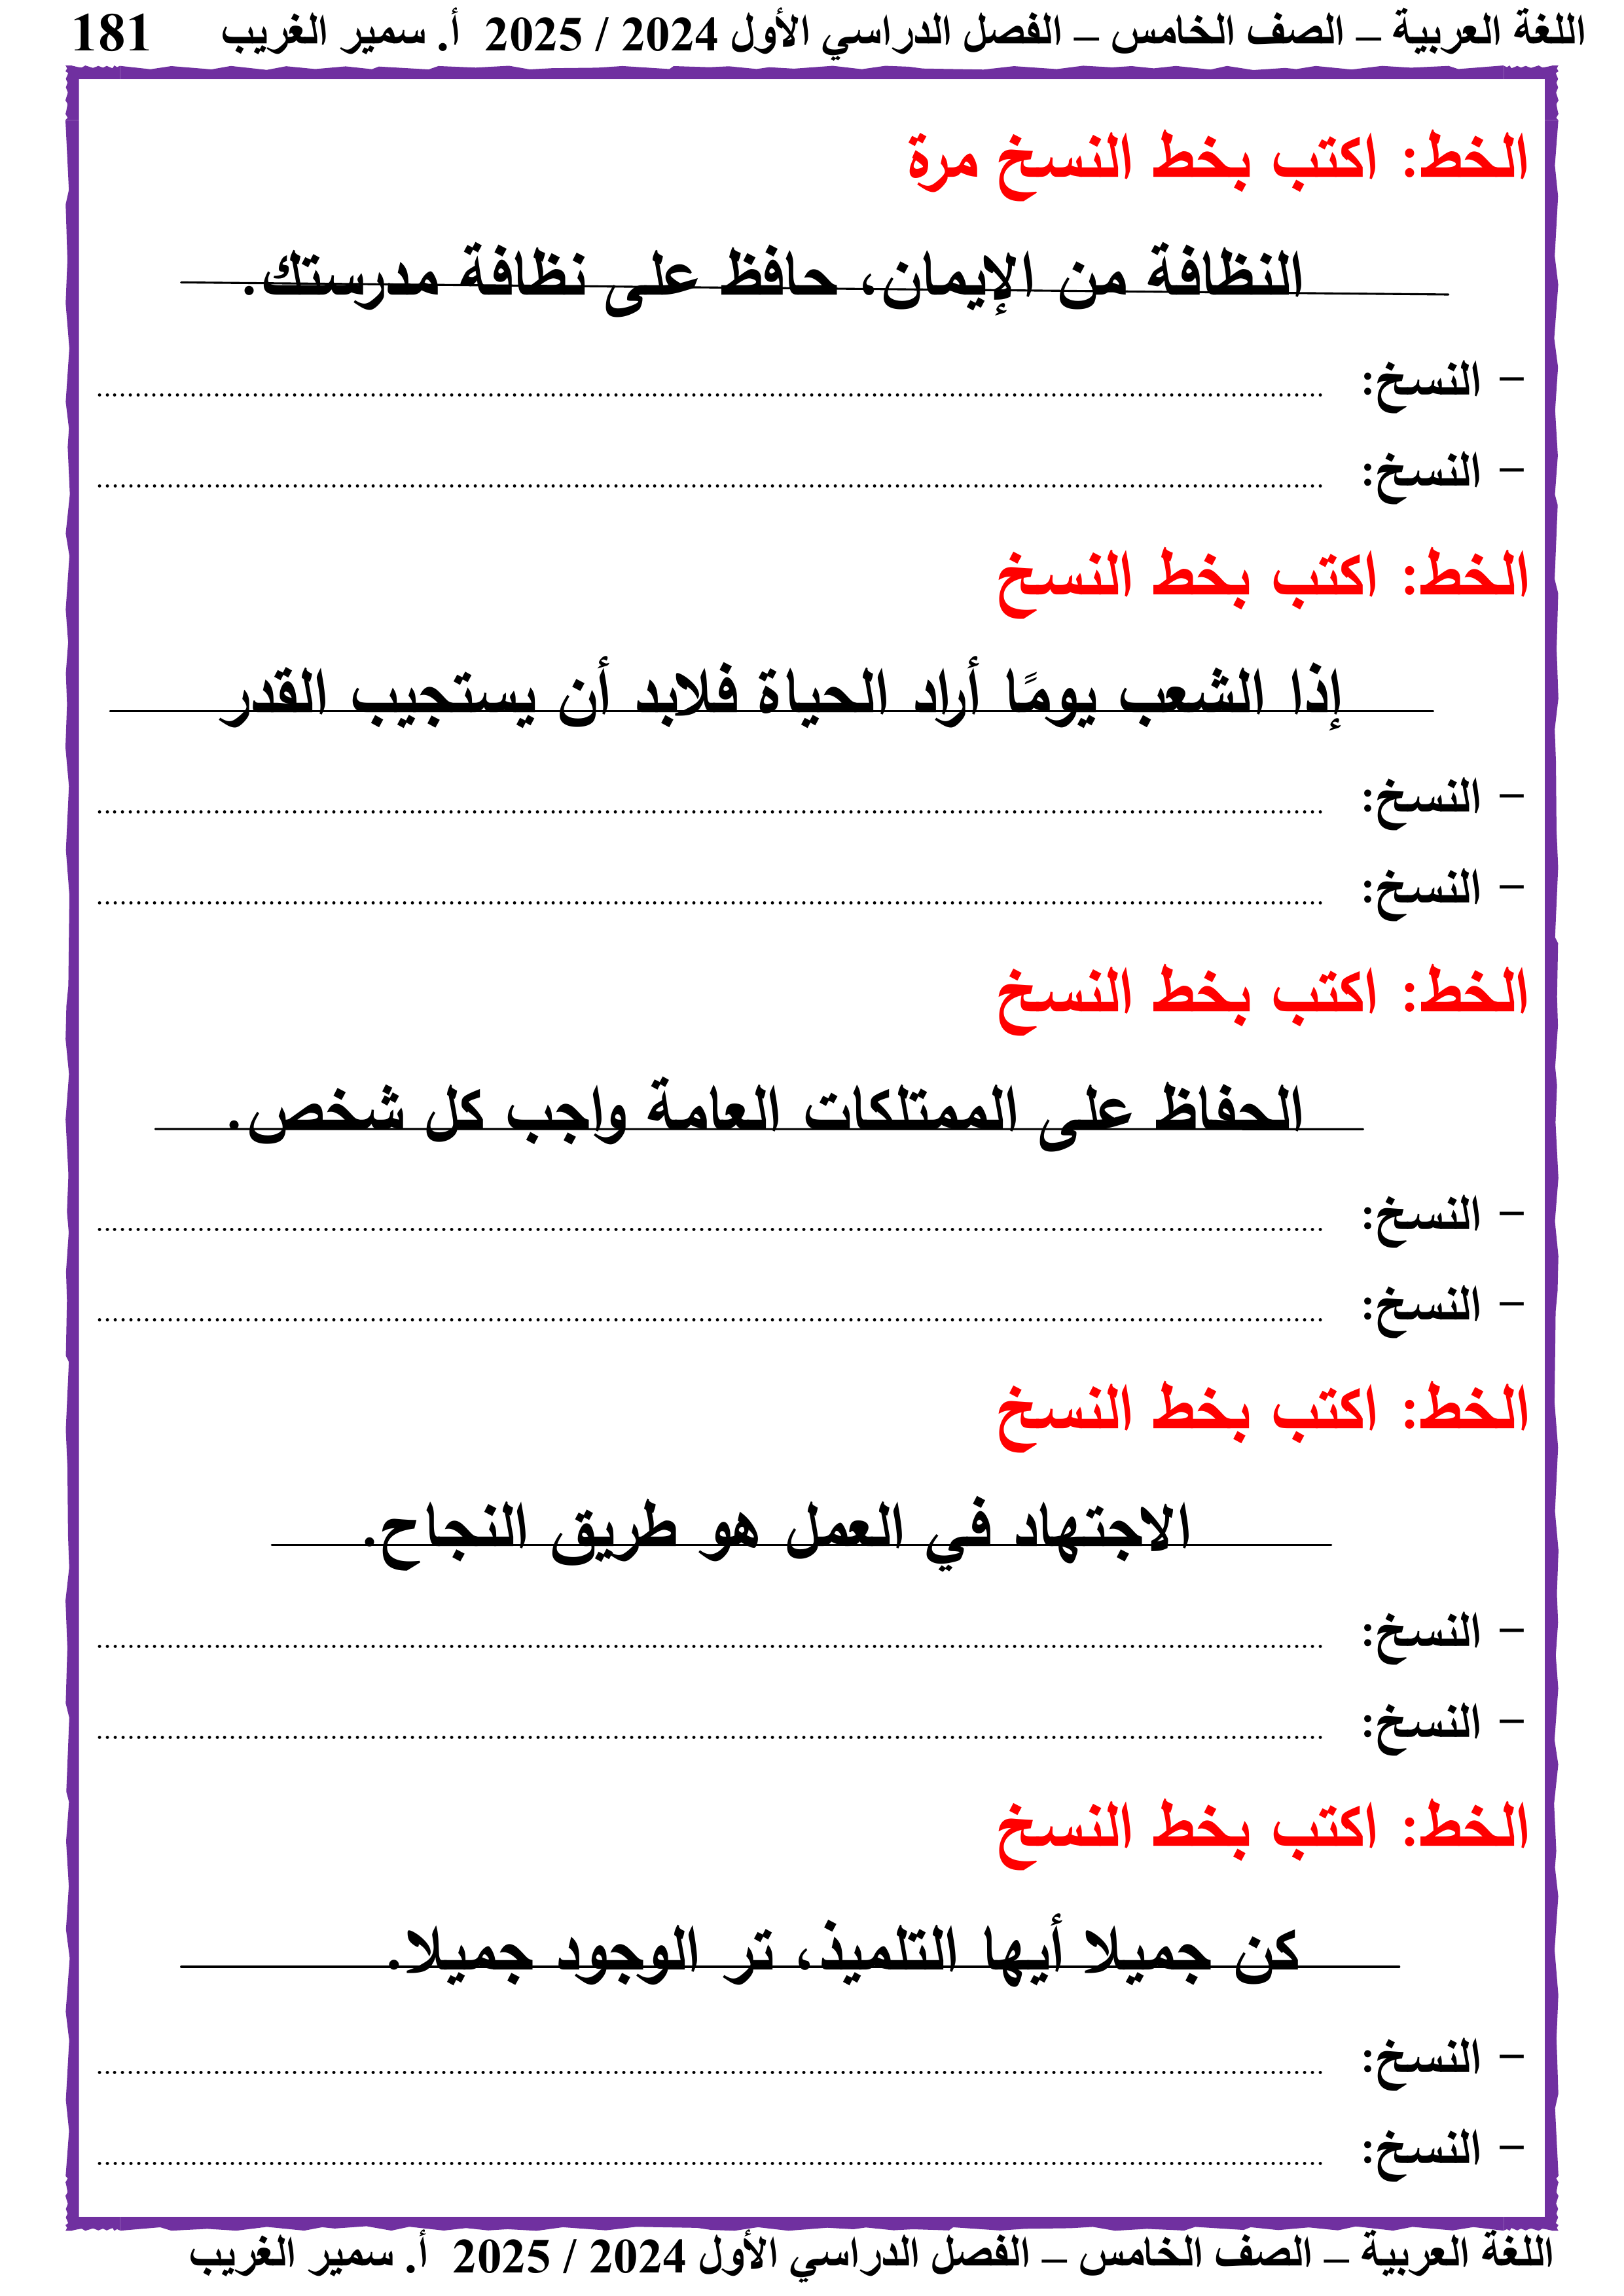 اللغة العربية – الصف الخامس – الفصل الدراسي الأول 2024 / 2025 أ. سمير الغريب 181
الخط: اكتب بخط النسخ مرة
النظافة من الإيمان، حافظ على نظافة مدرستك.
– النسخ: ........................................
– النسخ: ........................................
الخط: اكتب بخط النسخ
إذا الشعب يومًا أراد الحياة فلابد أن يستجيب القدر
– النسخ: ........................................
– النسخ: ........................................
الخط: اكتب بخط النسخ
الحفاظ على الممتلكات العامة واجب كل شخص.
– النسخ: ........................................
– النسخ: ........................................
الخط: اكتب بخط النسخ
الاجتهاد في العمل هو طريق النجاح.
– النسخ: ........................................
– النسخ: ........................................
الخط: اكتب بخط النسخ
كن جميلا أيها التلميذ، تر الوجود جميلا.
– النسخ: ........................................
– النسخ: ........................................
اللغة العربية – الصف الخامس – الفصل الدراسي الأول 2024 / 2025 أ. سمير الغريب